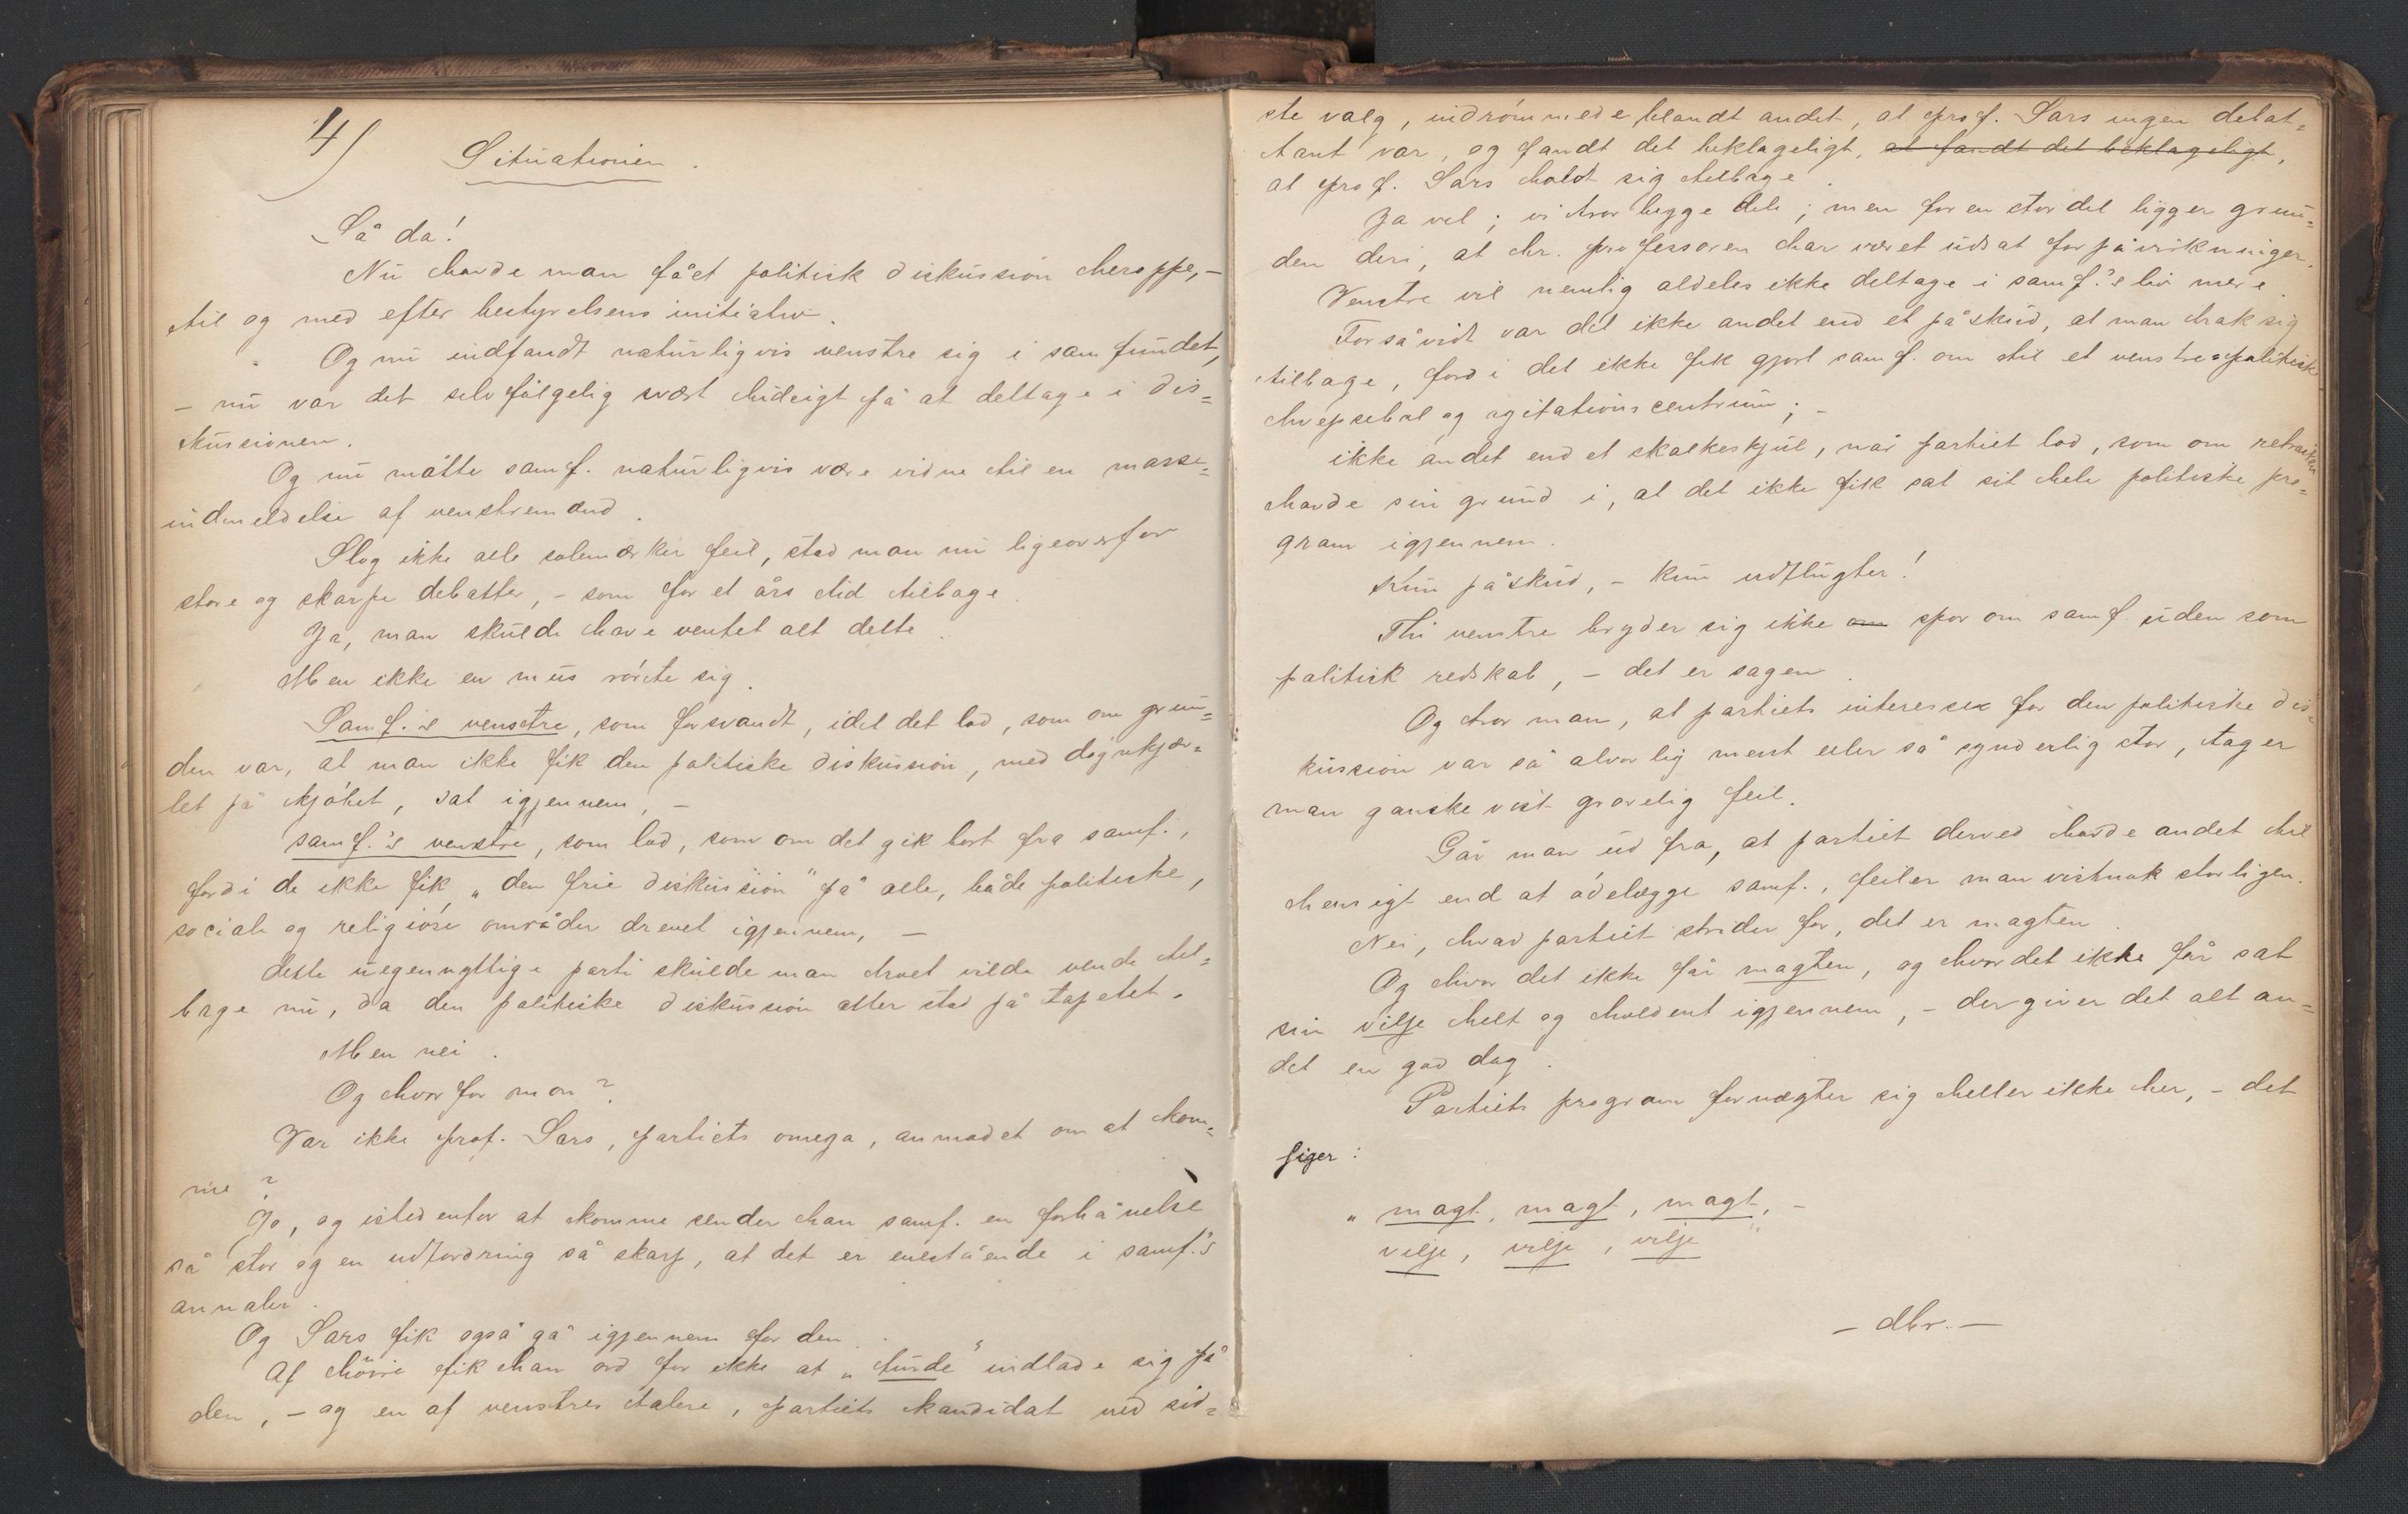 4)
Situationen.
Så da!
Nu havde man fået politisk diskussion heroppe, –
til og med efter bestyrelsens initiativ.
Og nu indfandt naturligvis venstre sig i samfundet,
– nu var det selvfølgelig svært hidsigt på at deltage i dis=
kussionen.
Og nu måtte samf. naturligvis være vidne til en masse=
indmeldelse af venstremænd.
Slog ikke alle solemærker feil, stod man nu ligeoverfor
store og skarpe debatter, – som for et års tid tilbage.
Ja, man skulde have ventet alt dette.
Men ikke en mus rørte sig.
Samf.'s venstre, som forsvandt, idet det lod, som om grun=
den var, at man ikke fik den politiske diskussion, med døgnkjæ=
let på kjøbet, sat igjennem, –
samf.'s venstre, som lod, som om det gik bort fra samf.,
fordi de ikke fik „den frie diskussion" på alle, både politiske,
sociale og religiøse områder drevet igjennem, –
dette uegennyttige parti skulde man troet vilde vende til=
bage nu, da den politiske diskussion atter stod på tapetet.
Men nei.
Og hvorfor mon?
Var ikke prof. Sars, partiets omega, anmodet om at kom=
me?
Jo, og istedenfor at komme sender han samf. en forhånelse
så stor og en udfordring så skarp, at det er enestående i samf.'s
annaler.
Og Sars fik også gå igjennem for den.
Af høire fik han ord for ikke at „turde" indlade sig på
den, – og en af venstres talere, partiets kandidat ved sid=
ste valg, indrømmede blandt andet, at prof. Sars ingen debat=
tant var, og fandt det beklageligt, at fandt det beklageligt,
at prof. Sars holdt sig tilbage.
Ja vel; vi tror begge dele; men for en stor del ligger grun=
den deri, at hr. professoren har været udsat for påvirkninger.
Venstre vil nemlig aldeles ikke deltage i samf.'s liv mere.
Forsåvidt var det ikke andet end et påskud, at man trak sig
tilbage, fordi det ikke fik gjort samf. om til et venstre=politisk
hvepsebol og agitationscentrum; –
ikke andet end et skalkeskjul, når partiet lod, som om retraiten
havde sin grund i, at det ikke fik sat sit hele politiske pro=
gram igjennem.
Kun påskud, – kun udflugter!
Thi venstre bryder sig ikke om spor om samf. uden som
politisk redskab, – det er sagen.
Og tror man, at partiets interesse for den politiske dis=
kussion var så alvorlig ment eller så synderlig stor, tager
man ganske vist gravelig feil.
Går man ud fra, at partiet derved havde andet til
hensigt end at ødelægge samf., feiler man vistnok storligen.
Nei, hvad partiet strider for, det er magten.
Og hvor det ikke får magten, og hvor det ikke får sat
sin vilje helt og holdent igjennem, – der giver det alt an=
det en god dag.
Partiets program fornægter sig heller ikke her, – det
siger:
„magt, magt, magt, –
vilje, vilje, vilje"
– dbr. –